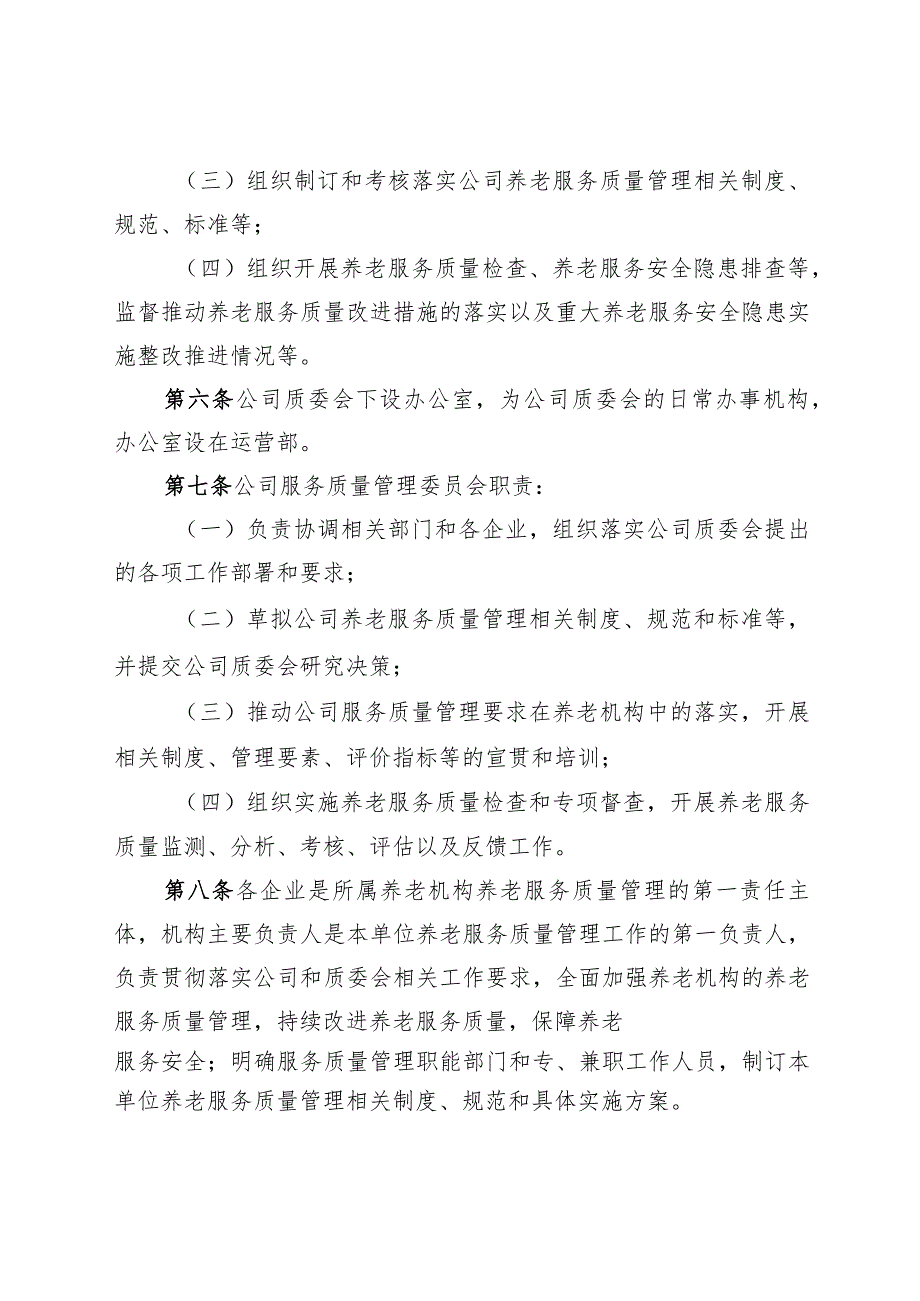 （三）组织制订和考核落实公司养老服务质量管理相关制度、
规范、标准等；
（四）组织开展养老服务质量检查、养老服务安全隐患排查等，
监督推动养老服务质量改进措施的落实以及重大养老服务安全隐患实
施整改推进情况等。
第六条公司质委会下设办公室，为公司质委会的日常办事机构，
办公室设在运营部。
第七条公司服务质量管理委员会职责：
（一）负责协调相关部门和各企业，组织落实公司质委会提出
的各项工作部署和要求；
（二）草拟公司养老服务质量管理相关制度、规范和标准等，
并提交公司质委会研究决策；
（三）推动公司服务质量管理要求在养老机构中的落实，开展
相关制度、管理要素、评价指标等的宣贯和培训；
（四）组织实施养老服务质量检查和专项督查，开展养老服务
质量监测、分析、考核、评估以及反馈工作。
第八条各企业是所属养老机构养老服务质量管理的第一责任主
体，机构主要负责人是本单位养老服务质量管理工作的第一负责人，
负责贯彻落实公司和质委会相关工作要求，全面加强养老机构的养老
服务质量管理，持续改进养老服务质量，保障养老
服务安全；明确服务质量管理职能部门和专、兼职工作人员，制订本
单位养老服务质量管理相关制度、规范和具体实施方案。